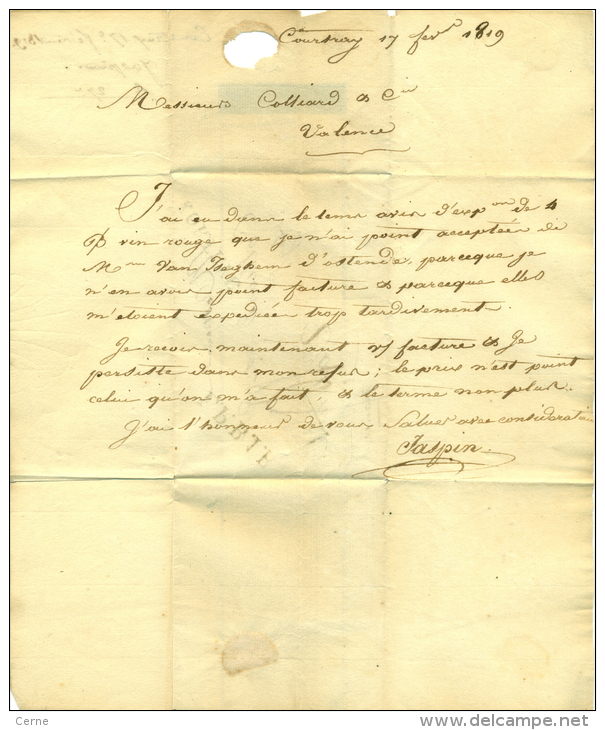 Courtray 17 fevr 1819
Messieurs Colliard & Cie
Valence
J'ai eu dans le tems avis d'expon de 4
P vin rouge que je n'ai point acceptées de
Mrs Van Iseghem d'ostende, parceque je
n'en avois point facture & parceque elles
m'etoient expediées trop tardivement.
Je reçois maintenant vs facture & Je
persiste dans mon refus; le prix n'est point
celui qu'on m'a fait, & le terme non plus.
J'ai l'honneur de vous Saluer avec consideration
Jaspin
Cerne
www.delcampe.net